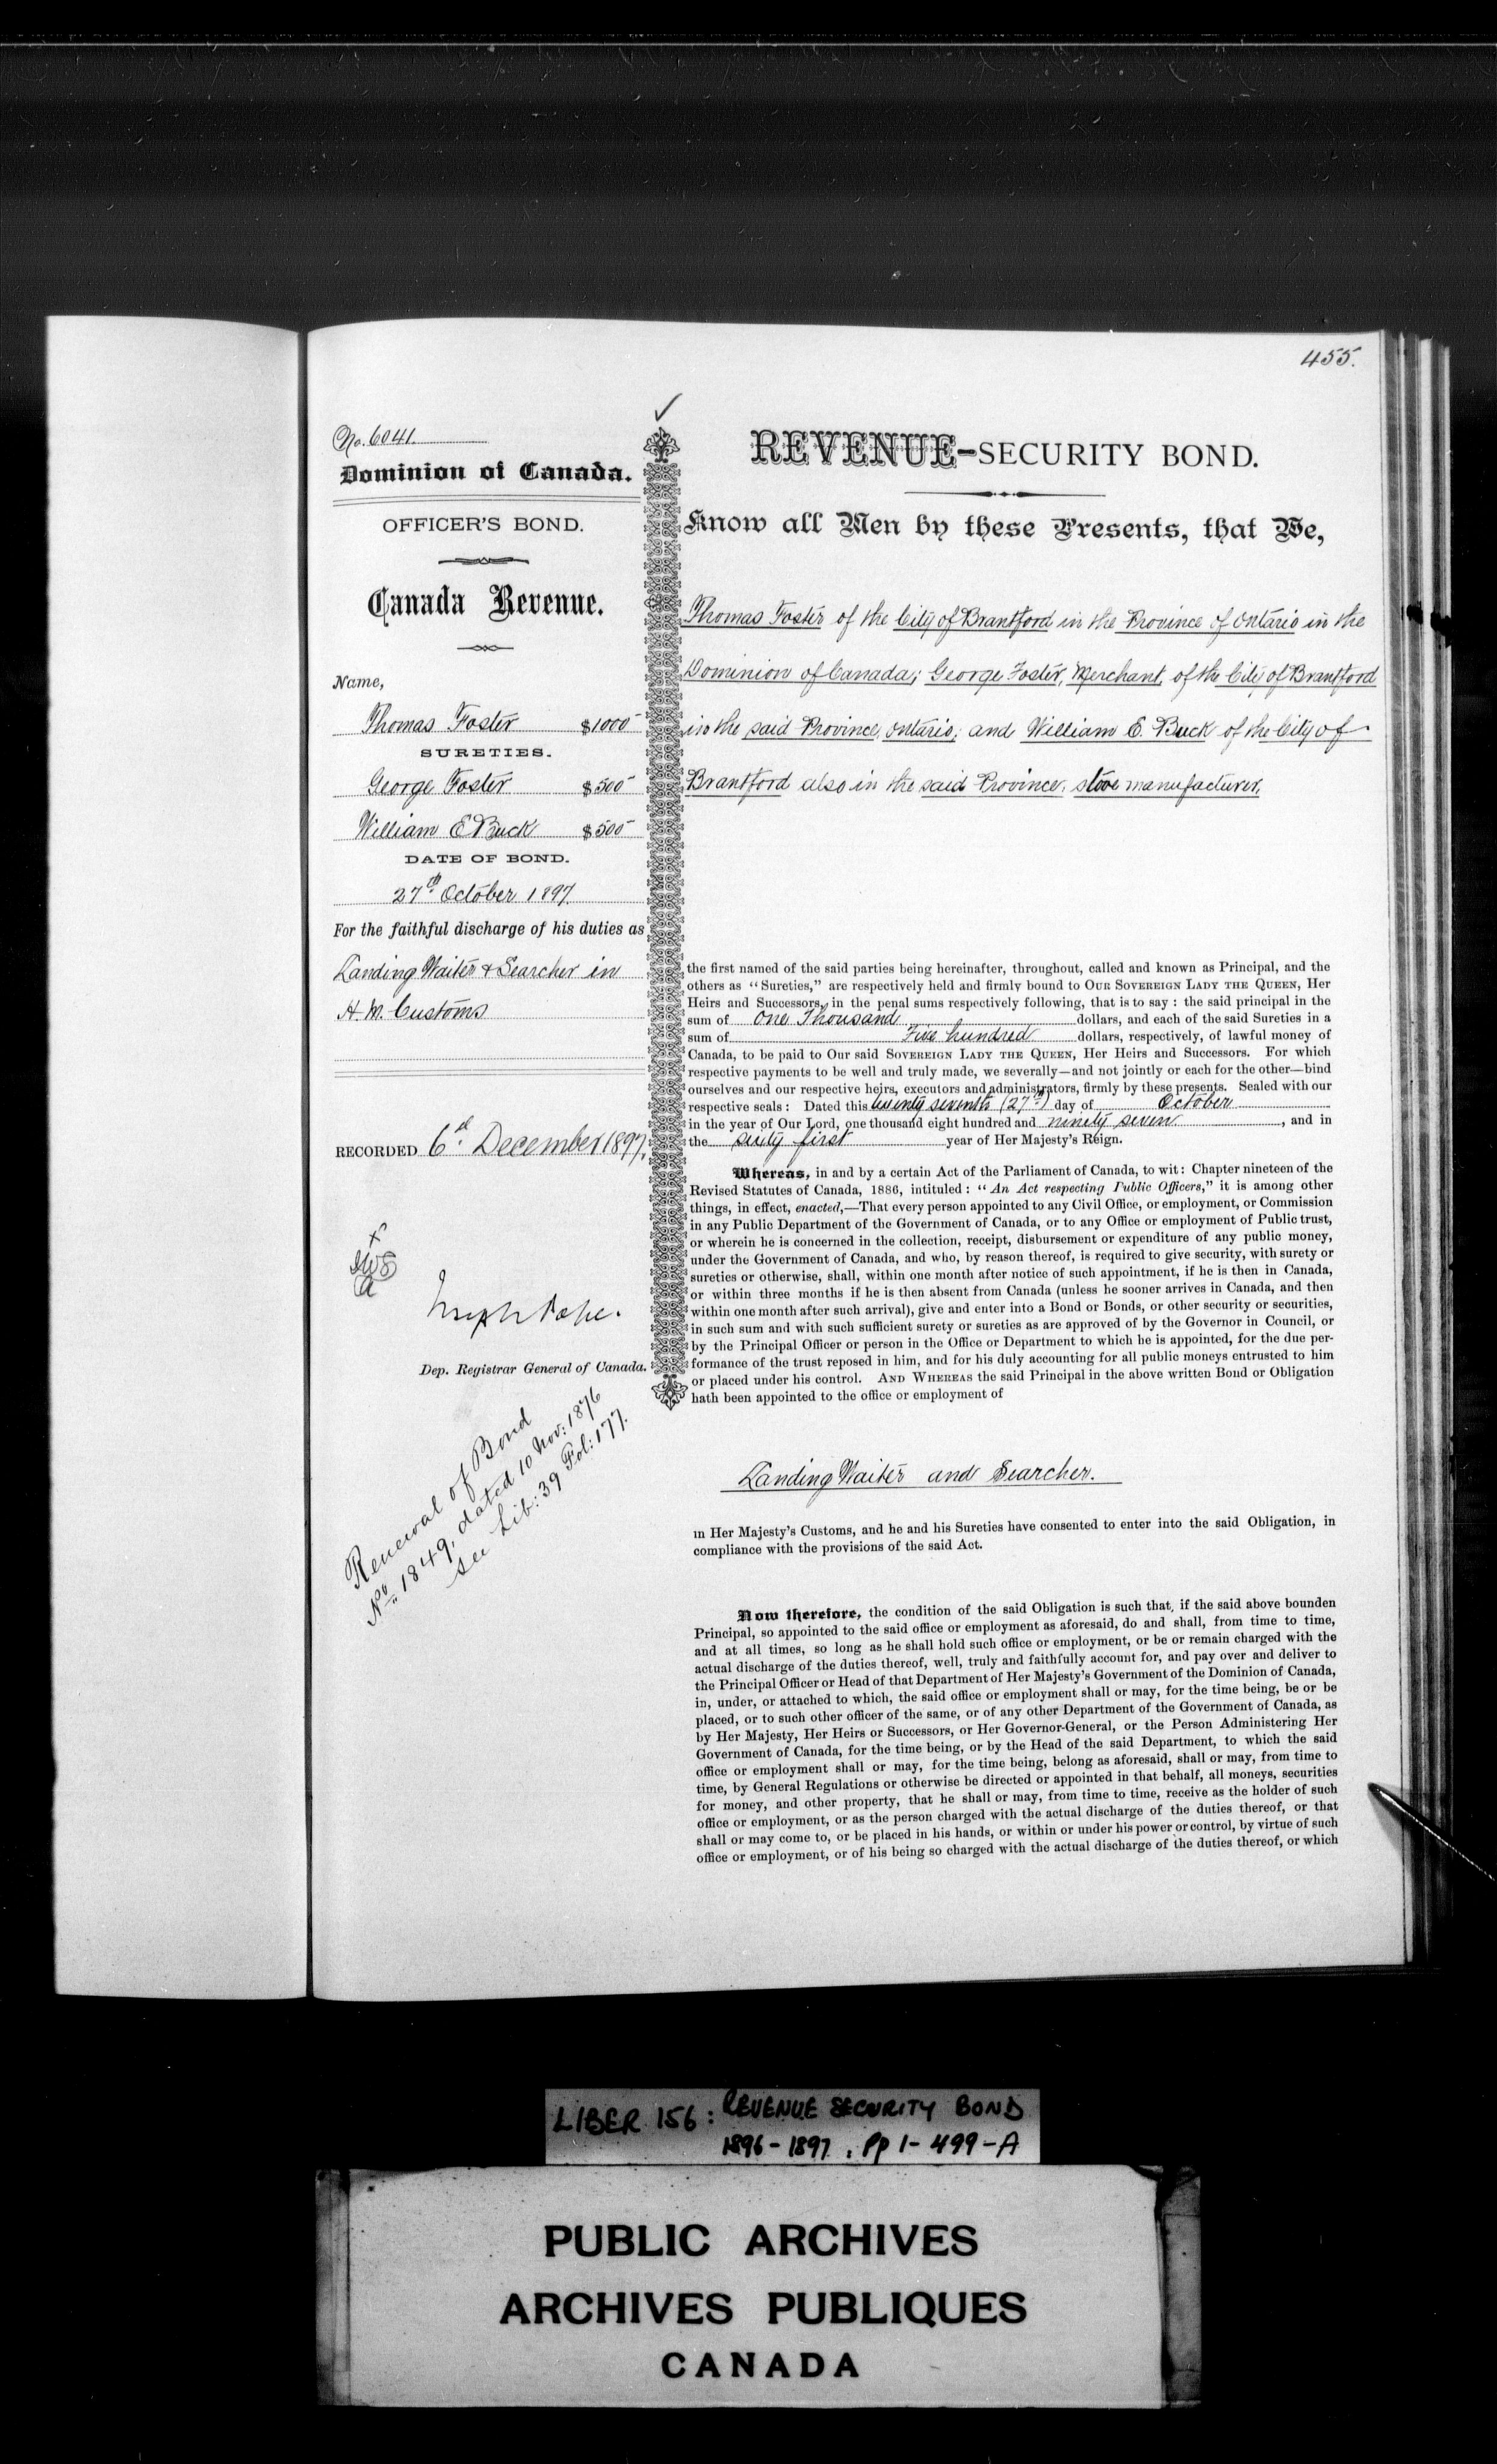 455.
No. 6041.
Dominion of Canada.
OFFICER'S BOND.
Canada Revenue.
Name,
Thomas Foster $1000
SURETIES.
George Foster $500
William E Buck $500
DATE OF BOND.
27th October 1897.
For the faithful discharge of his duties as
Landing Waiter & Searcher in
H. M. Customs
RECORDED 6th December 1897.
Joseph Pope.
Dep. Registrar General of Canada.
Renewal of Bond
No. 1849, dated 10 Nov: 1876
See Lib: 39 Fol: 177.
REVENUE-SECURITY BOND.
Know all Men by these Presents, that We,
Thomas Foster of the City of Brantford in the Province of Ontario in the
Dominion of Canada; George Foster, Merchant, of the City of Brantford
in the said Province, Ontario; and William E. Buck of the City of
Brantford also in the said Province, stove manufacturer,
the first named of the said parties being hereinafter, throughout, called and known as Principal, and the
others as "Sureties," are respectively held and firmly bound to OUR SOVEREIGN LADY THE QUEEN, Her
Heirs and Successors, in the penal sums respectively following, that is to say : the said principal in the
sum of One Thousand dollars, and each of the said Sureties in a
sum of Five hundred dollars, respectively, of lawful money of
Canada, to be paid to Our said SOVEREIGN LADY THE QUEEN, Her Heirs and Successors. For which
respective payments to be well and truly made, we severally—and not jointly or each for the other—bind
ourselves and our respective heirs, executors and administrators, firmly by these presents. Sealed with our
respective seals : Dated this twenty seventh (27th) day of October
in the year of Our Lord, one thousand eight hundred and ninety seven , and in
the sixty first year of Her Majesty's Reign.
Whereas, in and by a certain Act of the Parliament of Canada, to wit : Chapter nineteen of the
Revised Statutes of Canada, 1886, intituled : "An Act respecting Public Officers," it is among other
things, in effect, enacted,—That every person appointed to any Civil Office, or employment, or Commission
in any Public Department of the Government of Canada, or to any Office or employment of Public trust,
or wherein he is concerned in the collection, receipt, disbursement or expenditure of any public money,
under the Government of Canada, and who, by reason thereof, is required to give security, with surety or
sureties or otherwise, shall, within one month after notice of such appointment, if he is then in Canada,
or within three months if he is then absent from Canada (unless he sooner arrives in Canada, and then
within one month after such arrival), give and enter into a Bond or Bonds, or other security or securities,
in such sum and with such sufficient surety or sureties as are approved of by the Governor in Council, or
by the Principal Officer or person in the Office or Department to which he is appointed, for the due per-
formance of the trust reposed in him, and for his duly accounting for all public moneys entrusted to him
or placed under his control. AND WHEREAS the said Principal in the above written Bond or Obligation
hath been appointed to the office or employment of
Landing Waiter and Searcher.
in Her Majesty's Customs, and he and his Sureties have consented to enter into the said Obligation, in
compliance with the provisions of the said Act.
Now therefore, the condition of the said Obligation is such that, if the said above bounden
Principal, so appointed to the said office or employment as aforesaid, do and shall, from time to time,
and at all times, so long as he shall hold such office or employment, or be or remain charged with the
actual discharge of the duties thereof, well, truly and faithfully account for, and pay over and deliver to
the Principal Officer or Head of that Department of Her Majesty's Government of the Dominion of Canada,
in, under, or attached to which, the said office or employment shall or may, for the time being, be or be
placed, or to such other officer of the same, or of any other Department of the Government of Canada, as
by Her Majesty, Her Heirs or Successors, or Her Governor-General, or the Person Administering Her
Government of Canada, for the time being, or by the Head of the said Department, to which the said
office or employment shall or may, for the time being, belong as aforesaid, shall or may, from time to
time, by General Regulations or otherwise be directed or appointed in that behalf, all moneys, securities
for money, and other property, that he shall or may, from time to time, receive as the holder of such
office or employment, or as the person charged with the actual discharge of the duties thereof, or that
shall or may come to, or be placed in his hands, or within or under his power or control, by virtue of such
office or employment, or of his being so charged with the actual discharge of the duties thereof, or which
LIBER 156 : REVENUE SECURITY BOND
1896-1897 . Pp 1-499-A
PUBLIC ARCHIVES
ARCHIVES PUBLIQUES
CANADA